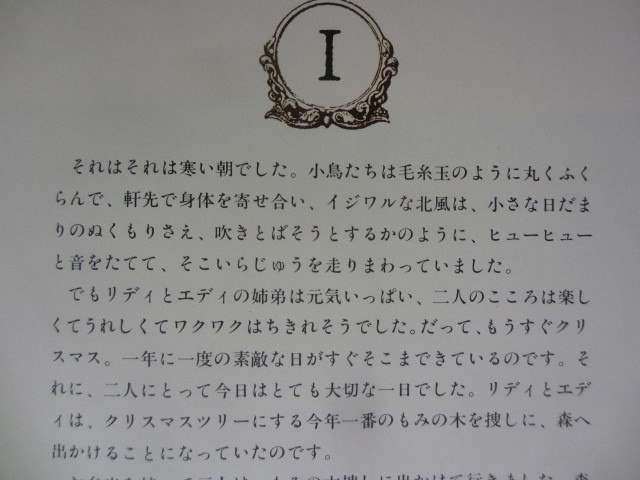 I
それはそれは寒い朝でした。小鳥たちは毛糸玉のように丸くふく
らんで、軒先で身体を寄せ合い、イジワルな北風は、小さな日だま
りのぬくもりさえ、吹きとばそうとするかのように、ヒューヒュー
と音をたてて、そこいらじゅうを走りまわっていました。
でもリディとエディの姉弟は元気いっぱい、二人のこころは楽し
くてうれしくてワクワクはちきれそうでした。だって、もうすぐクリ
スマス。一年に一度の素敵な日がすぐそこまできているのです。そ
れに、二人にとって今日はとても大切な一日でした。リディとエデ
ィは、クリスマスツリーにする今年一番のもみの木を捜しに、森へ
出かけることになっていたのです。